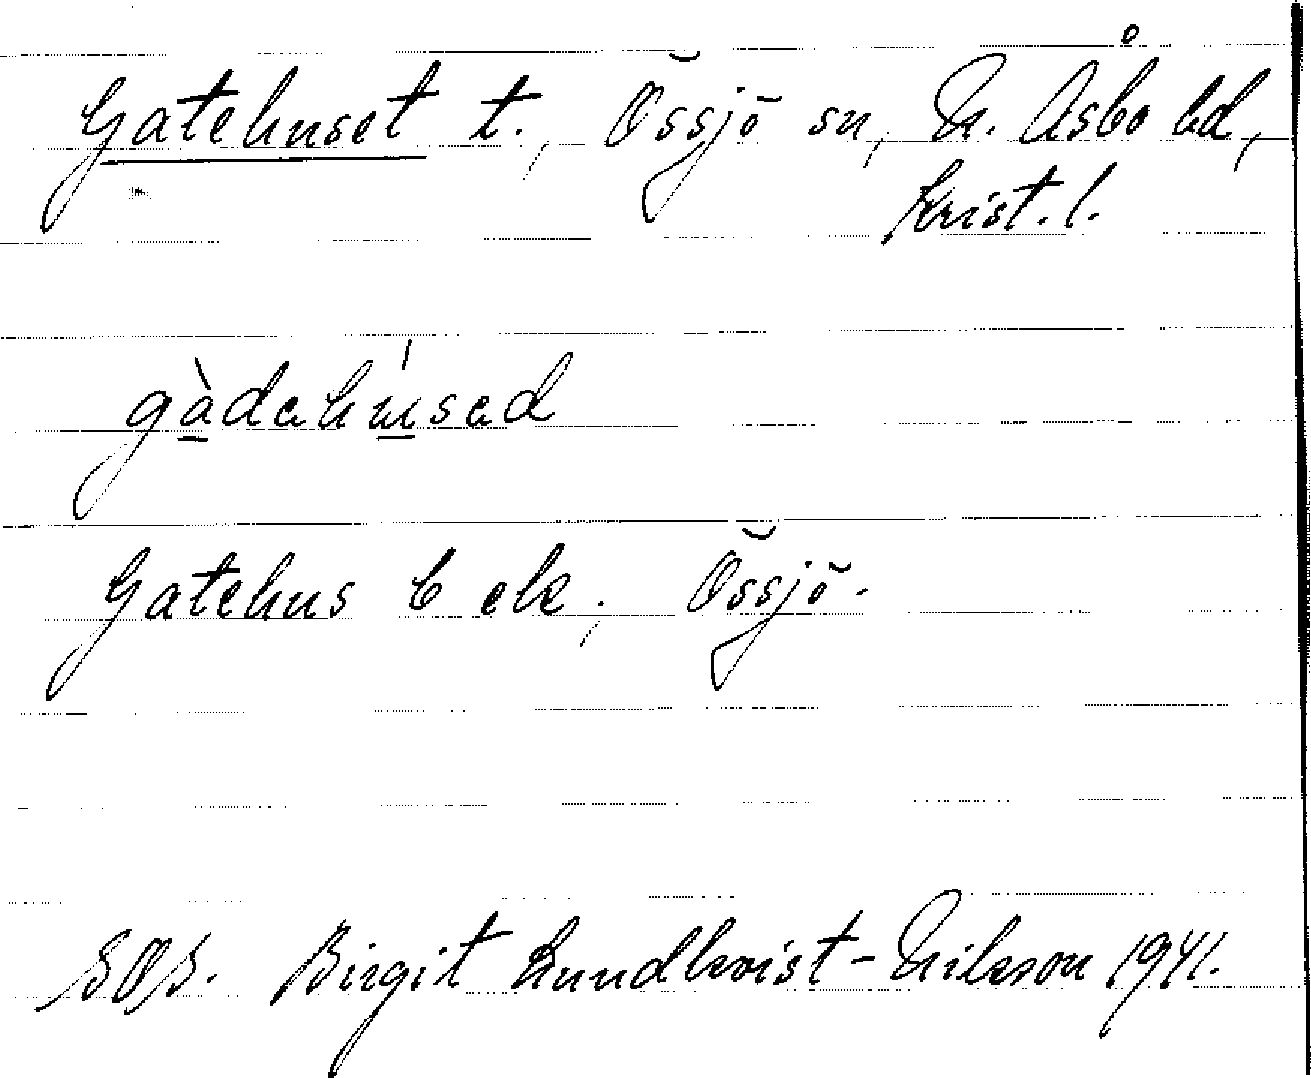 Gatehuset t., Össjö sn, N. Åsbo hd,
Krist. l.
gàdahúsad
Gatehus b ek, Össjö.
SOS. Birgit Lundkvist-Nilsson 1941.